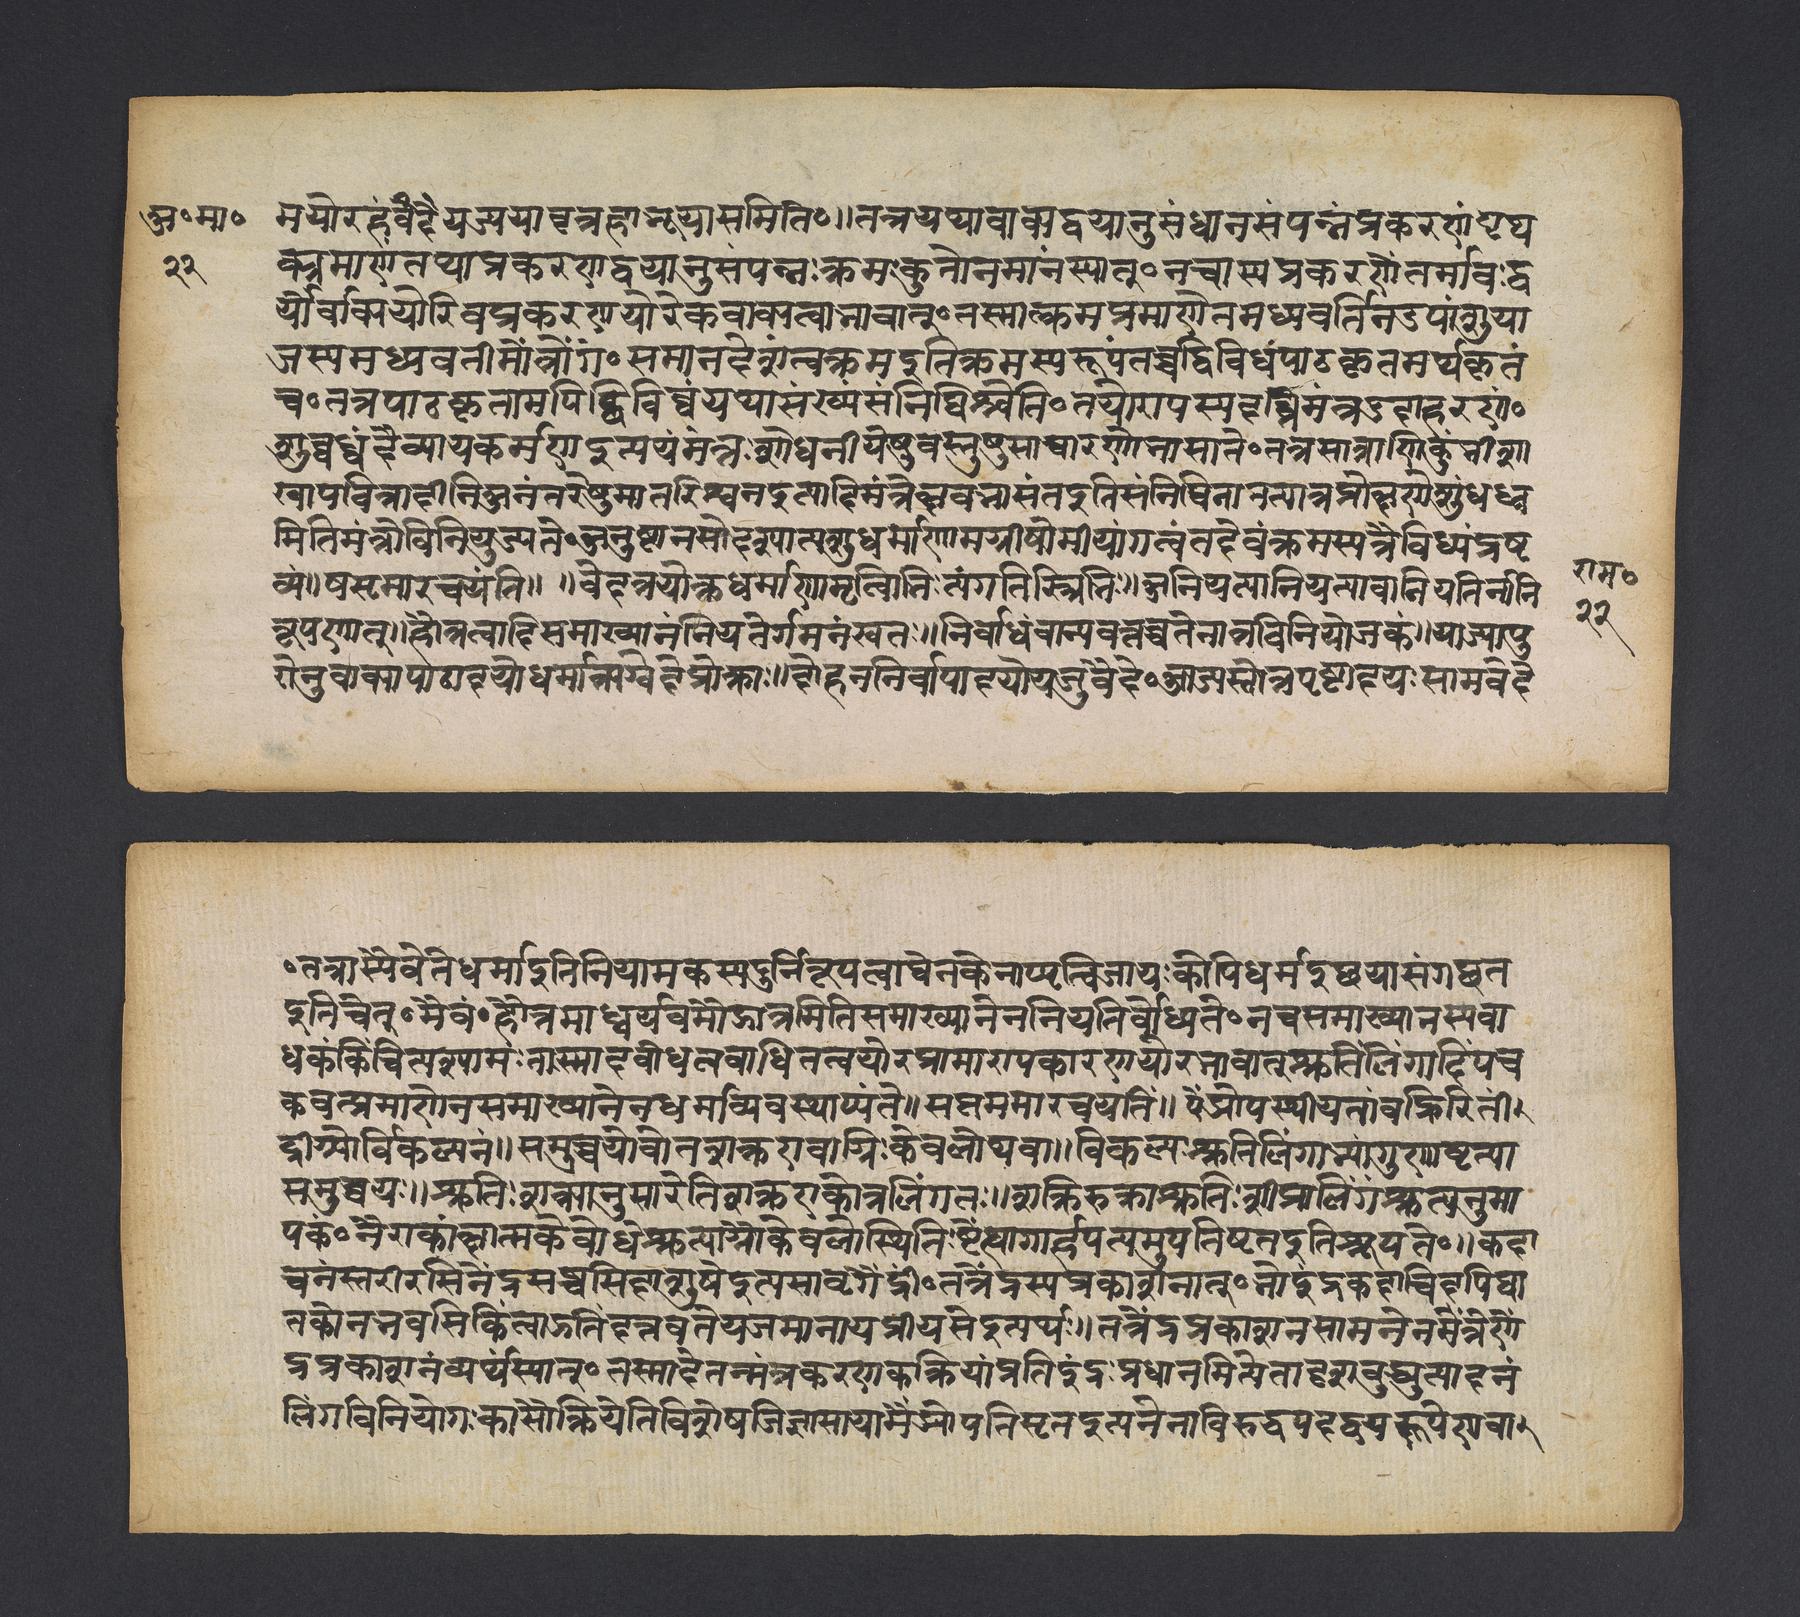 अ॰मा॰
२२
मयोरहं वैदेयज्ययावृत्रहाभूयासमिति॰॥तत्रयथावाक्यद्वयानुसंधानसंपन्नंप्रकरणंपृथ
क्प्रमाणंतथाप्रकरणद्वयानुसंपन्नःक्रमःकुतोनमानंस्यात्॰नचास्यप्रकरणेंतर्भावःद्व
योर्वाक्ययोरिवप्रकरणयोरेकवाक्यत्वाभावात्॰तस्मात्क्रमप्रमाणेनमध्यवर्तिनउपांशुया
जस्यमध्यवर्तीमंत्रोंगं॰समानदेशत्वंक्रमइतिक्रमस्यरूपंतच्चद्विविधंपाठकृतमर्थकृतं
च॰तत्रपाठकृतमपिद्विविधंयथासंख्यंसंनिधिश्चेति॰तयोराद्यस्यदब्धिमंत्रउदाहरणं॰
शुंधध्वंदैव्यायकर्मणइत्ययंमंत्रःशोधनीयेषुवस्तुषुसाधारणोभासते॰तत्रसान्नाय्यकुंभीशा
खापवित्रादीनिव्यंजनंतरेषुमातरिश्वनइत्यादिमंत्रेष्ववभासंतइतिसंनिधिनातत्पात्रप्रोक्षणेशुंधध्व
मितिमंत्रोविनियुज्यते॰अनुष्ठानसादेश्यात्पशुधर्माणामग्नीषोमीयांगत्वंतदेवंक्रमस्यत्रैविध्यंद्रष्ट
व्यं॥षष्ठमारचयति॥ ॥वेदत्रयोक्तधर्माणामृत्विग्भिःसंगतिस्त्रिभिः॥अनियत्यानियत्यावानियतिर्नानि
रूपणात्॥हौत्रत्वादिसमाख्यानंनियतेर्गमनंस्वतः॥निर्बाधंचान्यवत्तच्चतेनात्रविनियोजकं॥याज्यापु
रोनुवाक्यापाठादयोधर्माऋग्वेदेप्रोक्ताः॥दोहननिर्वापादयोयजुर्वेदे॰आज्यस्तोत्रपृष्ठादयःसामवेदे
राम॰
२२
॰तत्रास्यैवैतेधर्माइतिनियामकस्यदुर्निरूपत्वाद्येनकेनाप्यृत्विजायःकोपिधर्मइच्छयासंगच्छत
इतिचेत्॰मैवं॰हौत्रमाध्वर्यवमौद्गात्रमितिसमाख्यानेननियतिर्बोध्यते॰नचसमाख्यानस्यबा
धकंकिंचित्पश्यामः॰तस्मादबोधत्वबाधितत्वयोरप्रामाण्यकारणयोरभावात्श्रुतिलिंगादिपंच
कवत्प्रमाणेनसमाख्यानेनधर्माव्यवस्थाप्यंते॥सप्तममारचयति॥ऐंद्र्योपस्थीयतांवह्निरितीं
द्राग्न्योर्विकल्पनं॥समुच्चयोवोतशक्रएवाग्निःकेवलोथवा॥विकल्पःश्रुतिलिंगाभ्यांगुणावृत्त्या
समुच्चयः॥श्रुतिःशक्त्यनुसारेतिशक्रएकोत्रलिंगतः॥शक्तिरुक्ताश्रुतिःशीघ्रालिंगंश्रुत्यनुमा
पकं॰नैराकांक्ष्यात्मकेबोधेश्रुत्याग्नौकेवलेस्थितिः॥ऐंद्र्यागार्हपत्यमुपतिष्ठतइतिश्रूयते॰॥कदा
चनस्तरीरसिनेंद्रसश्चसिदाशुषेइत्यसावृगैंद्री॰तत्रेंद्रस्यप्रकाशनात्॰भोइंद्रकदाचिदपिघा
तकोनभवसिकिंत्वाहुतिंदत्तवतेयजमानायप्रीयसेइत्यर्थः॥तत्रेंद्रप्रकाशनसामर्थ्येनमंत्रेणें
द्रप्रकाशनंव्यर्थंस्यात्॰तस्मादेतन्मंत्रकरणकक्रियांप्रतिइंद्रःप्रधानमित्येतादृशबुद्ध्युत्पादनं
लिंगविनियोगःकासौक्रियेतिविशेषजिज्ञासायामैंद्र्योपतिष्ठतइत्यनेनाविरुद्धपदद्वयरूपेणवा